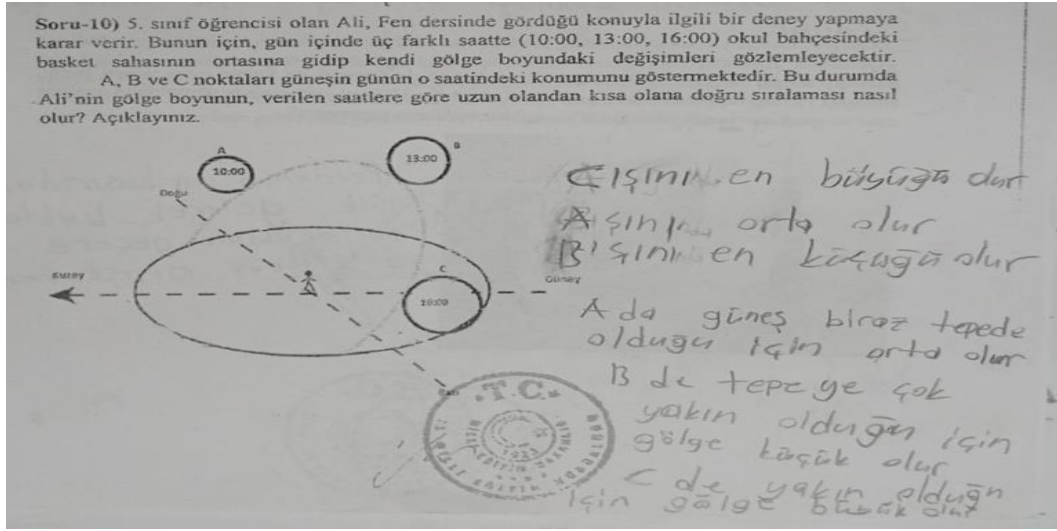 Soru-10) 5. sınıf öğrencisi olan Ali, Fen dersinde gördüğü konuyla ilgili bir deney yapmaya
karar verir. Bunun için, gün içinde üç farklı saatte (10:00, 13:00, 16:00) okul bahçesindeki
basket sahasının ortasına gidip kendi gölge boyundaki değişimleri gözlemleyecektir.
A, B ve C noktaları güneşin günün o saatindeki konumunu göstermektedir. Bu durumda
Ali'nin gölge boyunun, verilen saatlere göre uzun olandan kısa olana doğru sıralaması nasıl
olur? Açıklayınız.
A
10:00
B
13:00
Doğu
Kuzey
Güney
C
16:00
en büyüğü olur
orta olur
en küçüğü olur
A da güneş biraz tepede
olduğu için orta olur
B de tepeye çok
yakın olduğu için
gölge küçük olur
C de yakın olduğu
için gölge büyük olur
T.C.
1923